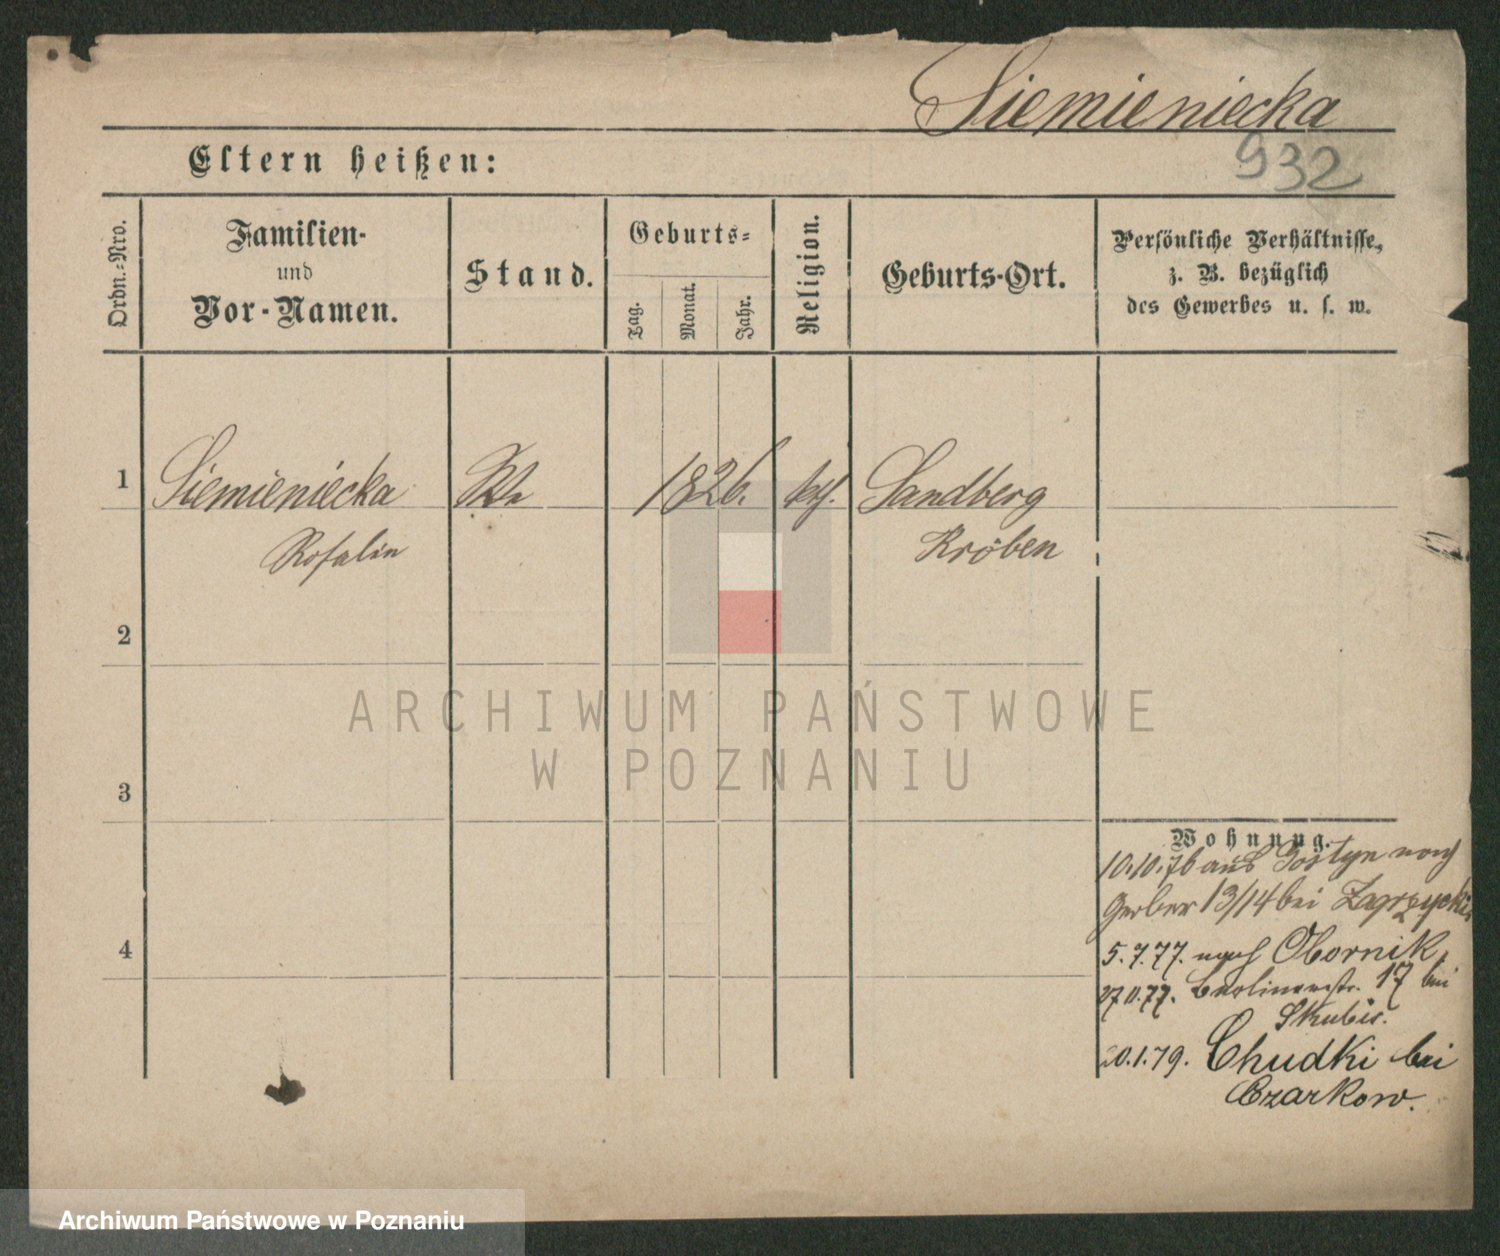 Siemieniecka
932
Eltern heißen:
Ordn.-Nro.
Familien-
und
Vor-Namen.
Stand.
Geburts-
Tag.
Monat.
Jahr.
Religion.
Geburts-Ort.
Persönliche Verhältnisse,
z. B. bezüglich
des Gewerbes u. s. w.
1 Siemieniecka 1826. kth. Sandberg
Rosalin Kröben
2
ARCHIWUM PAŃSTWOWE
W POZNANIU
3
Wohnung.
10.10.76 aus Gostyn nach
Gerber 13/14 bei Zagrzycki
4
5.7.77. nach Obornik,
27.11.77. Berlinerstr. 17 bei
Skubis.
20.1.79. Chudki bei
Czarkow.
Archiwum Państwowe w Poznaniu